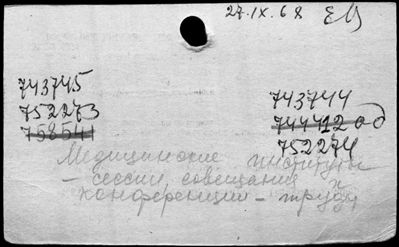 27.IX.68
743745
752273
758541
743744
744412 од
752274
Медицинские институты
- сессии, совещания и
конференции - труды